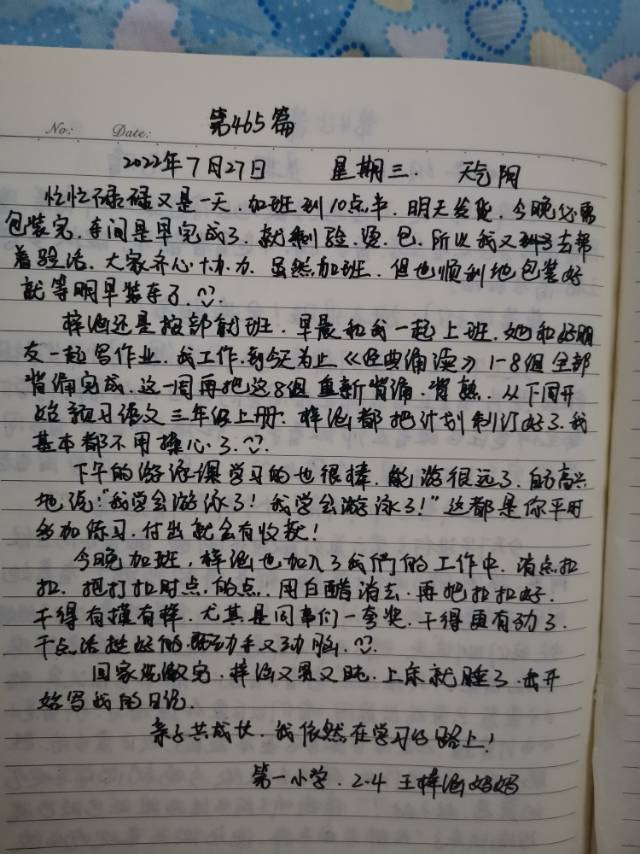 第465篇
No: Date:
2022年7月27日 星期三. 天气阴
忙忙碌碌又是一天. 加班到10点半. 明天发货. 今晚必需
包装完. 车间是早完成了. 就剩验. 烫. 包. 所以我又去帮
着验活. 大家齐心协力. 虽然加班. 但也顺利地包装好
就等明早装车了.
梓涵还是按部就班. 早晨和我一起上班. 她和好朋
友一起写作业. 我工作. 到今天为止《经典诵读》1-8组全部
背诵完成. 这一周再把这8组重新背诵. 背熟. 从下周开
始预习语文三年级上册. 梓涵都把计划制订好了. 我
基本都不用操心了.
下午的游泳课学习的也很棒. 能游很远了. 自豪高兴
地说:"我学会游泳了! 我学会游泳了!"这都是你平时
多加练习. 付出就会有收获!
今晚加班. 梓涵也加入了我们的工作中. 消点扣
扣. 把打扣时点的点. 用白醋消去. 再把扣扣好.
干得有模有样. 尤其是同事们一夸奖. 干得更有劲了.
干点活挺好的. 既动手又动脑.
回家洗漱完. 梓涵又累又盹. 上床就睡了. 我开
始写我的日记.
亲子共成长. 我依然在学习的路上!
第一小学. 2.4 王梓涵妈妈